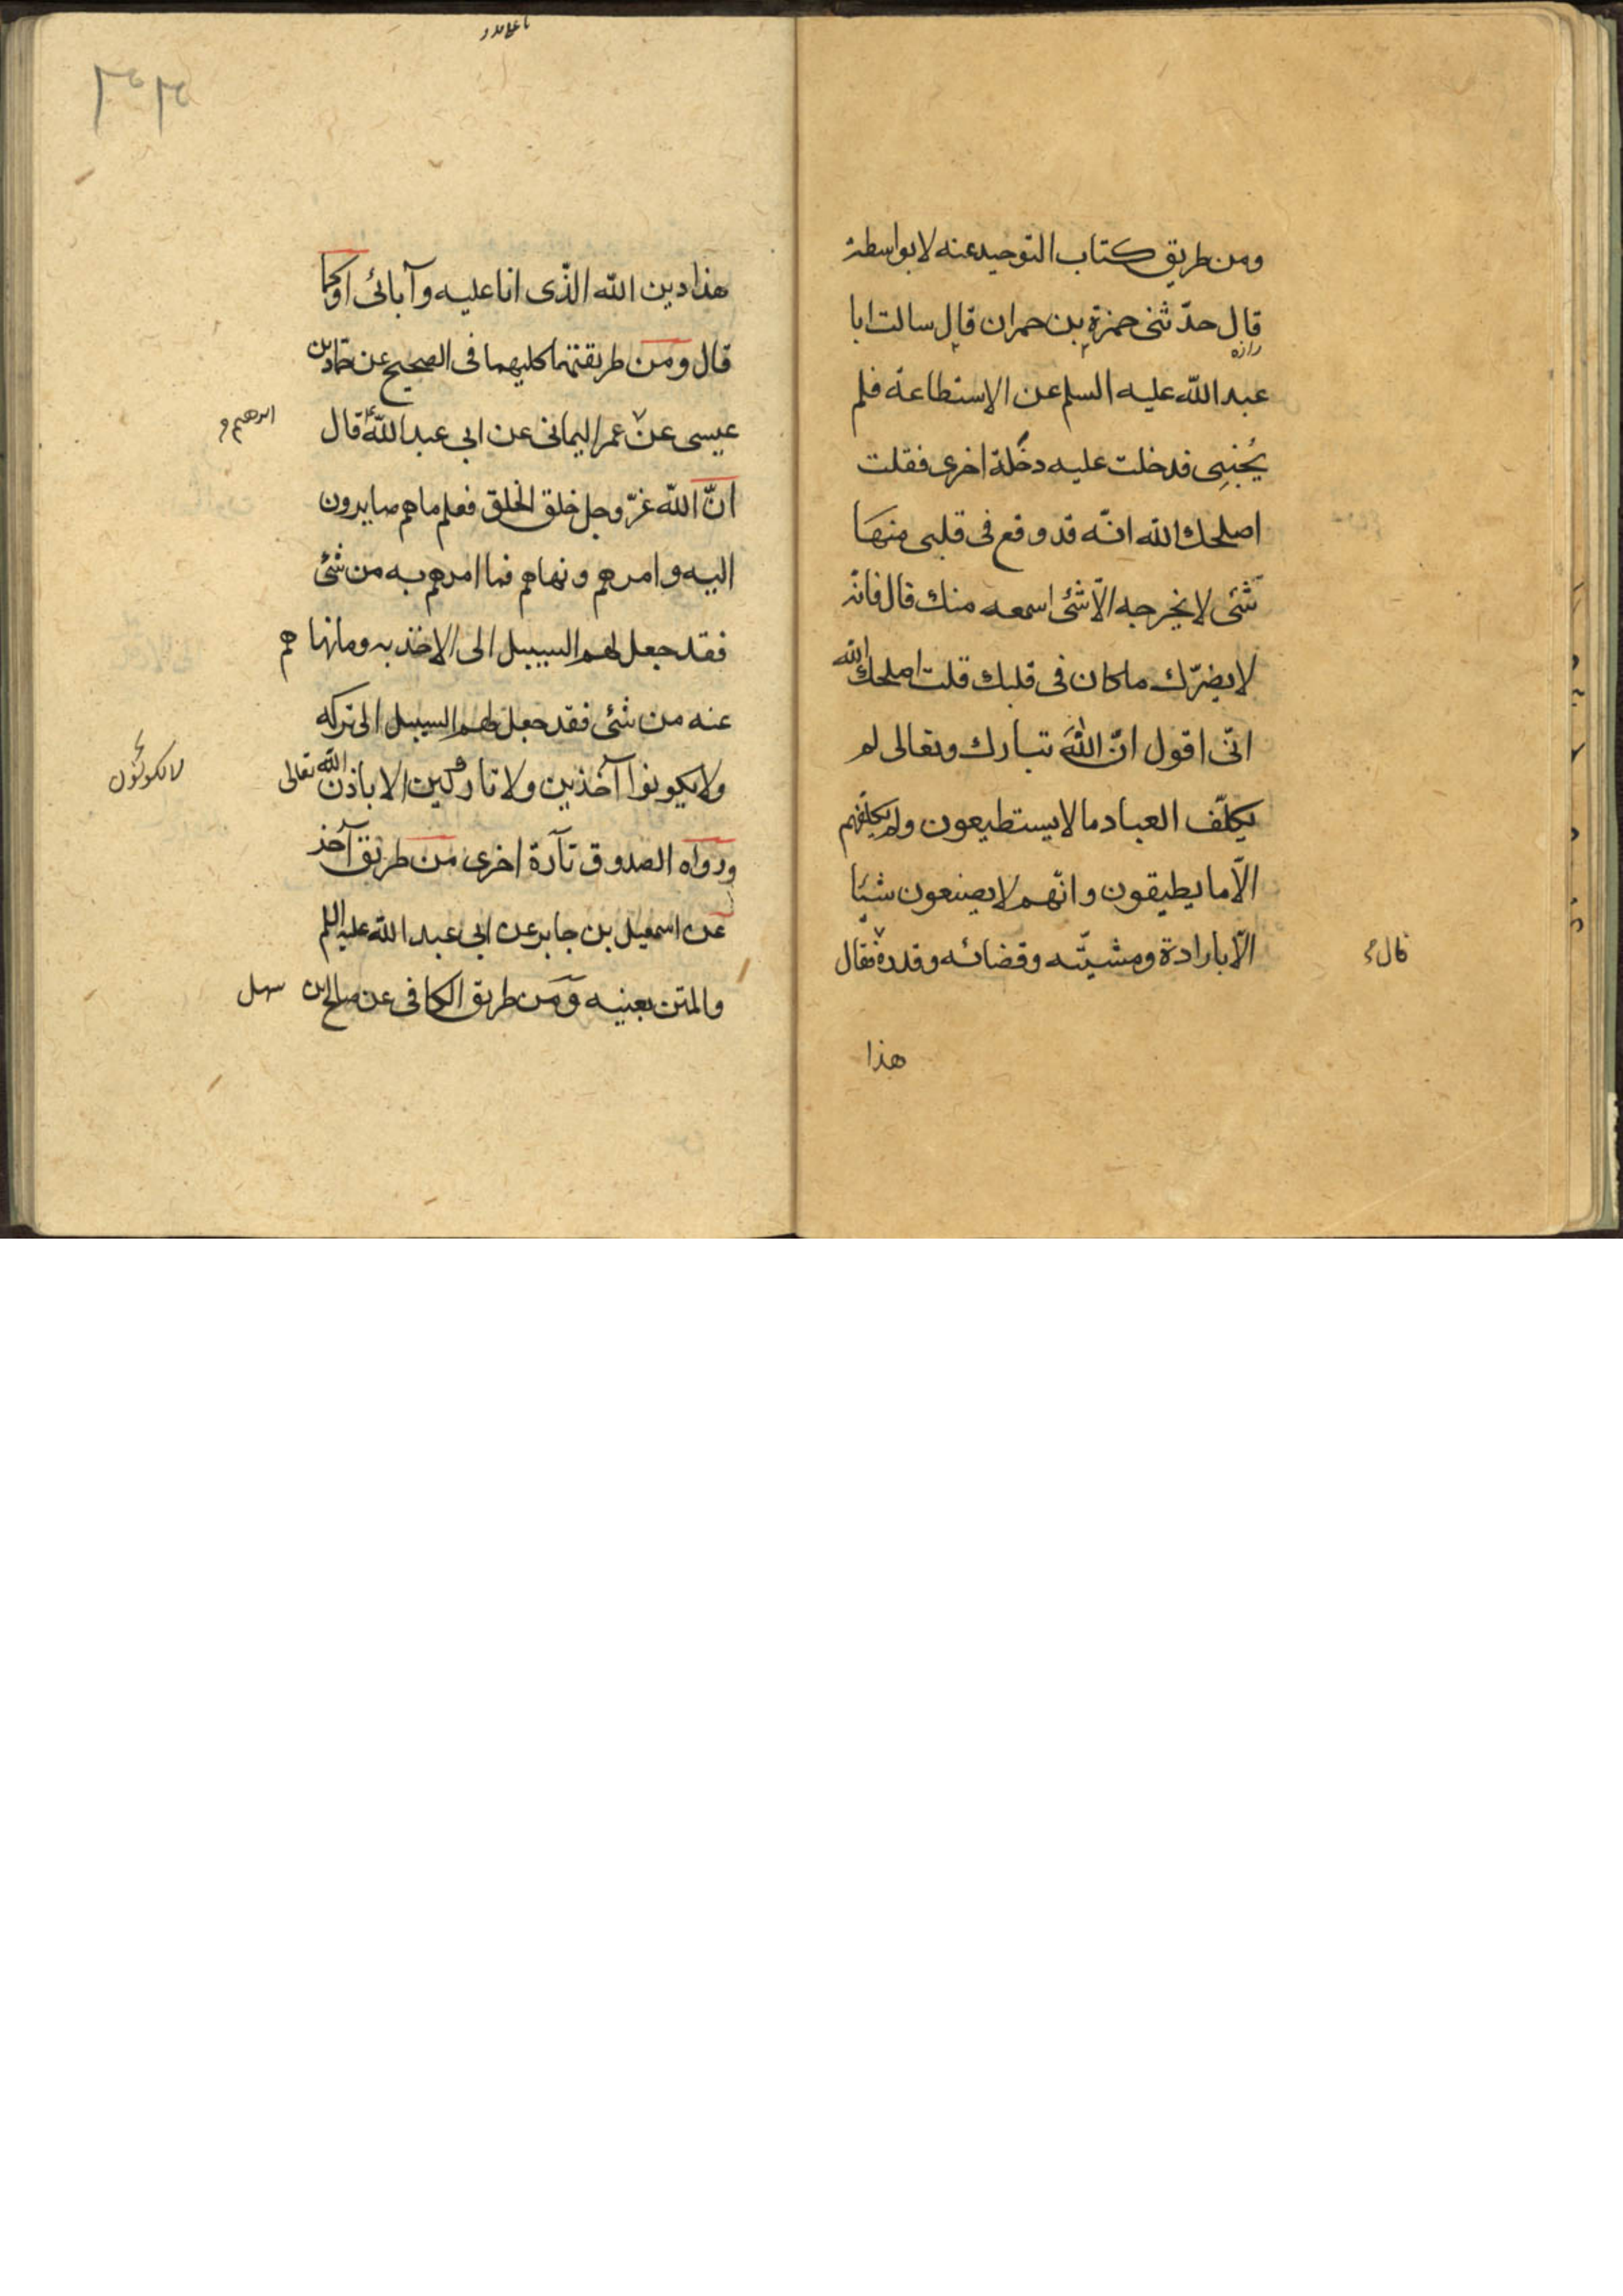 ومن طريق كتاب التوحيد عنه لا بواسطة
قال حدّثنى حمزة بن حمران قال سالت ابا
عبد الله عليه السلم عن الاستطاعة فلم
يُجِبنِى فدخلت عليه دخلة اخرى فقلت
اصلحك الله انّه قد وقع فى قلبى منهَا
شئى لا يخرجه الّا شئى اسمعه منك قال فانّه
لا يضرّك ما كان فى قلبك قلت اصلحك الله
انّى اقول انّ اللهَ تبارك وتعالى لم
يكلّف العباد ما لا يستطيعون ولم يكلّفهم
الّا ما يطيقون وانّهم لا يصنعون شيئا
الّا بارادة ومشيّته وقضائه وقدره فقال
قال
هذا
هذا دين الله الذّى انا عليه وآبائى اوكما
قال ومن طريقتهما كليهما فى الصحيح عن حماد بن
عيسى عن عمر اليمانى عن ابى عبد اللهّ قال
ابرهيم و
انّ الله عزّ وجل خلق الخلق فعلم ما هم صايرون
اليه وامرهم ونهاهم فما امرهم به من شئى
فقد جعل لهم السبيل الى الاخذ به وما نهاهم
عنه من شئى فقد جعل لهم السبيل الى تركه
ولا يكونوا آخذين ولا تاركين الا باذن الله تعالى
لا يكونون
ورواه الصدوق تآرة اخرى من طريق آخر
عن اسمعيل بن جابر عن ابى عبد الله عليه السلم
والمتن بعينه ومن طريق الكافى عن صالح بن سهل